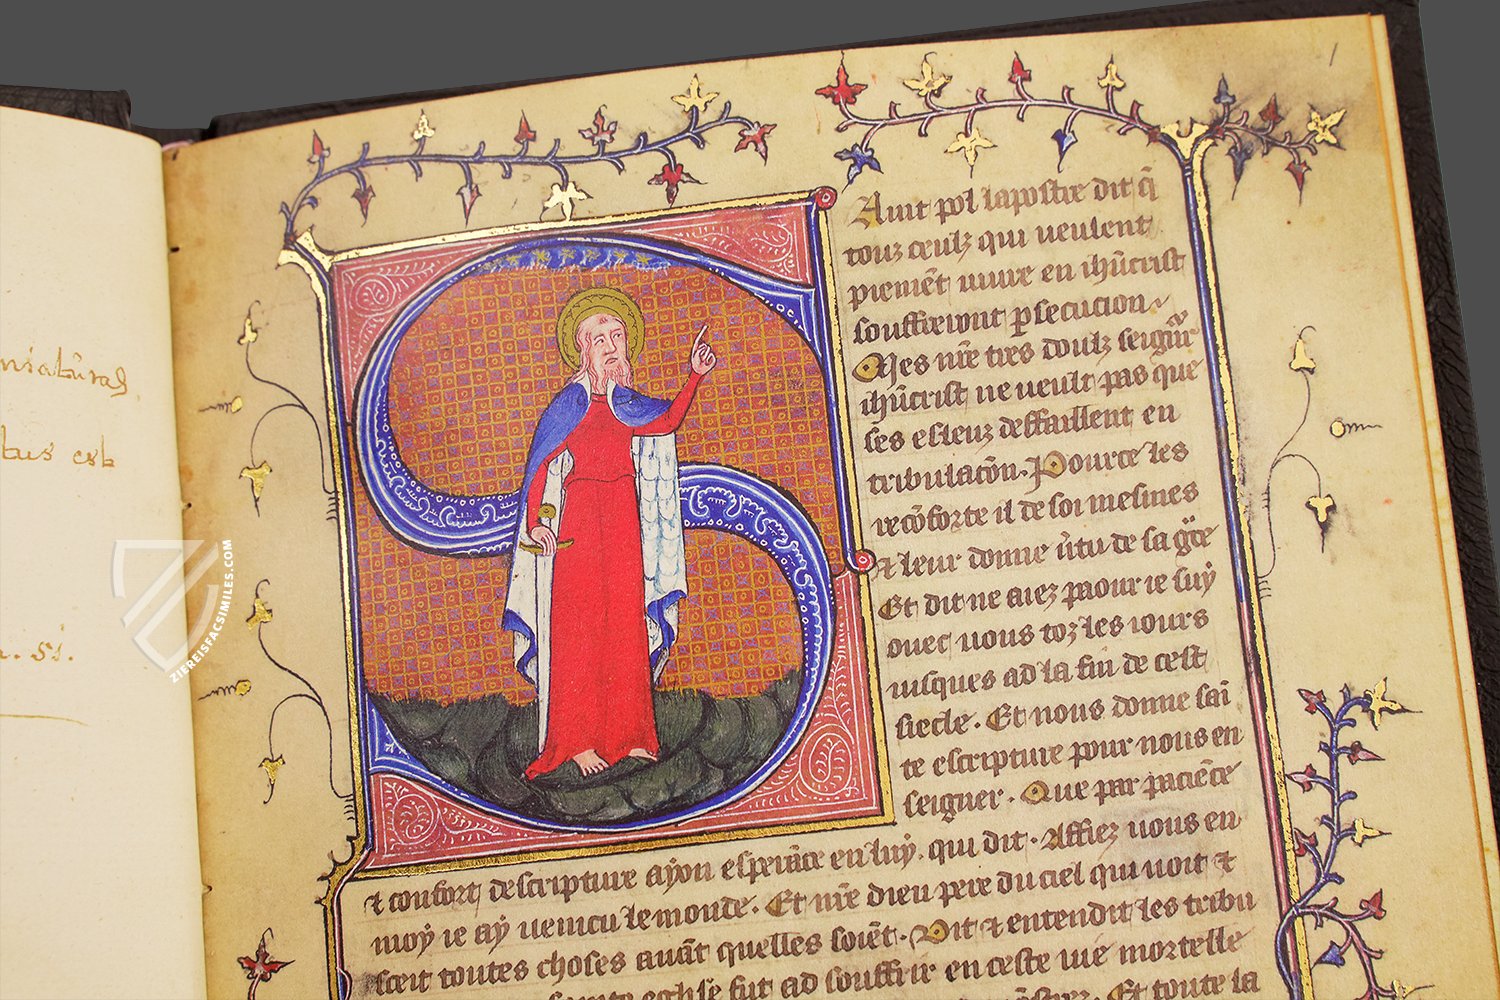 niatūras
tus est
n. 51.
ZIEREISFACSIMILES.COM
1
S
Aint pol lapostre dit q̄
touz ceulz qui ueulent
piemēt uiure en ihūcrist
souffreront ꝑsecucion
Mes nr̄e tres doulz seignr̄
ihūcrist ne ueult pas que
ses esleuz deffaillent en
tribulacōn. Pource les
recōforte il de soi mesmes
⁊ leur donne u̾tu de sa gr̄ce
Et dit ne aiez paour ie suy
ouec uous toz les iours
iusques ad la fin de cest
siecle. Et nous donne sai
te escripture pour nous en
seigner. Que par paciēce
⁊ confort descripture ayon esperāce en luy. qui dit. Affiez uous en
moy ie ay ueincu le monde. Et nr̄e dieu pere du ciel qui uoit ⁊
sceit toutes choses auāt quelles soiēt. Vit ⁊ entendit les tribu
eglise fut ad souffrir en ceste uie mortelle
Et toute la